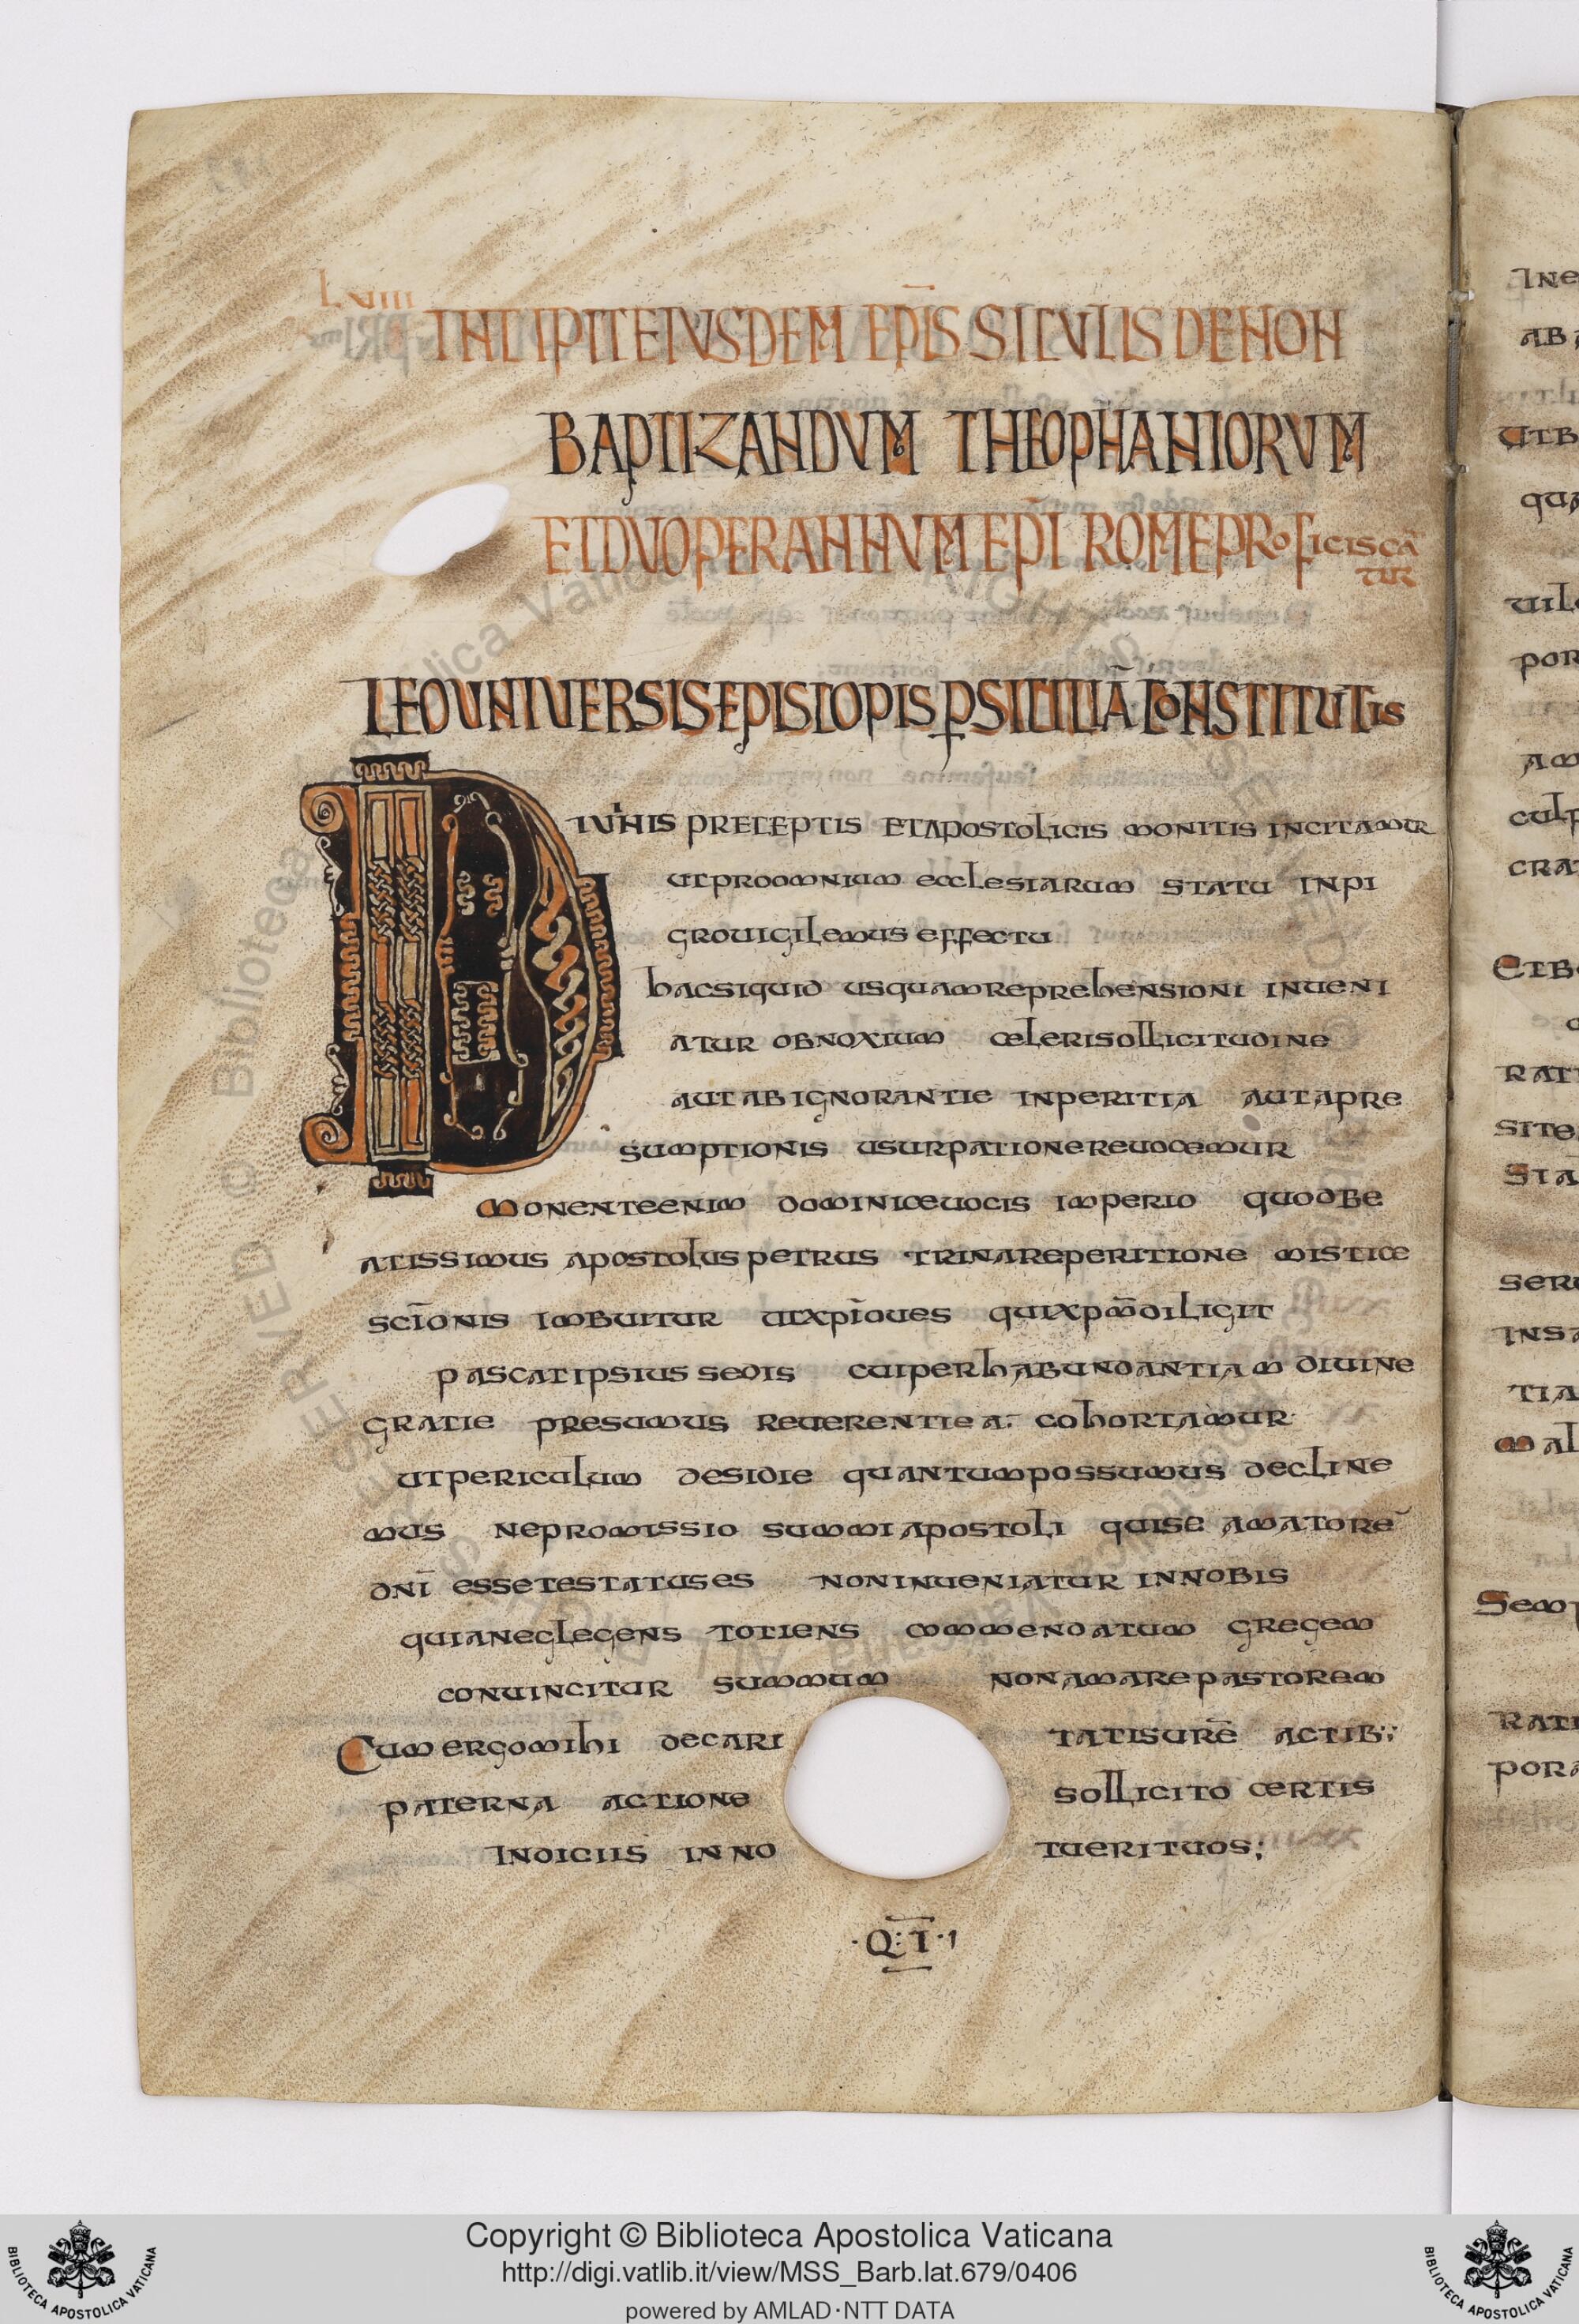 LVIIII
INCIPIT EIUSDEM EPĪS SICULIS DE NON
BAPTIZANDUM THEOPHANIORUM
ET DUO PER ANNUM EPI ROME PROFICISCĀ
TUR
LEO UNIVERSIS EPISCOPIS P SICILIĀ CONSTITUTIS
DIVINIS PRECEPTIS ET APOSTOLICIS MONITIS INCITAMUR
UT PRO OMNIUM ECCLESIARUM STATU INPI
GRO VIGILEMUS EFFECTU
hAC SI QUID USQUAM REPREhENSIONI INVENI
ATUR OBNOXIUM CELERI SOLLICITUDINE
AUT AB IGNORANTIE INPERITIA AUT A PRE
SUMPTIONIS USURPATIONE REVOCEMUR
MONENTE ENIM DOMINICE VOCIS IMPERIO QUOD BE
ATISSIMUS APOSTOLUS PETRUS TRINA REPERITIONE MISTICE
SCĪONIS IMBUITUR UT XPĪ OVES QUI XPM̄ DILIGIT
PASCAT IPSIUS SEDIS CUI PER hABUNDANTIAM DIVINE
GRATIE PRESUMUS REVERENTIEA. COhORTAMUR
UT PERICULUM DESIDIE QUANTUM POSSUMUS DECLINE
MUS NE PROMISSIO SUMMI APOSTOLI QUI SE AMATORE̅
DNĪ ESSE TESTATUS ES NON INVENIATUR IN NOBIS
QUIA NEGLEGENS TOTIENS COMMENDATUM GREGEM
CONVINCITUR SUMMUM NON AMARE PASTOREM
CUM ERGO MIhI DE CARITATIS URĒ ACTIB;
PATERNA ACTIONE SOLLICITO CERTIS
INDICIIS INNOTUERIT VOS;
·Q:Ī·I
Copyright © Biblioteca Apostolica Vaticana
http://digi.vatlib.it/view/MSS_Barb.lat.679/0406
powered by AMLAD·NTT DATA
BIBLIOTECA APOSTOLICA VATICANA
BIBLIOTECA APOSTOLICA VATICANA